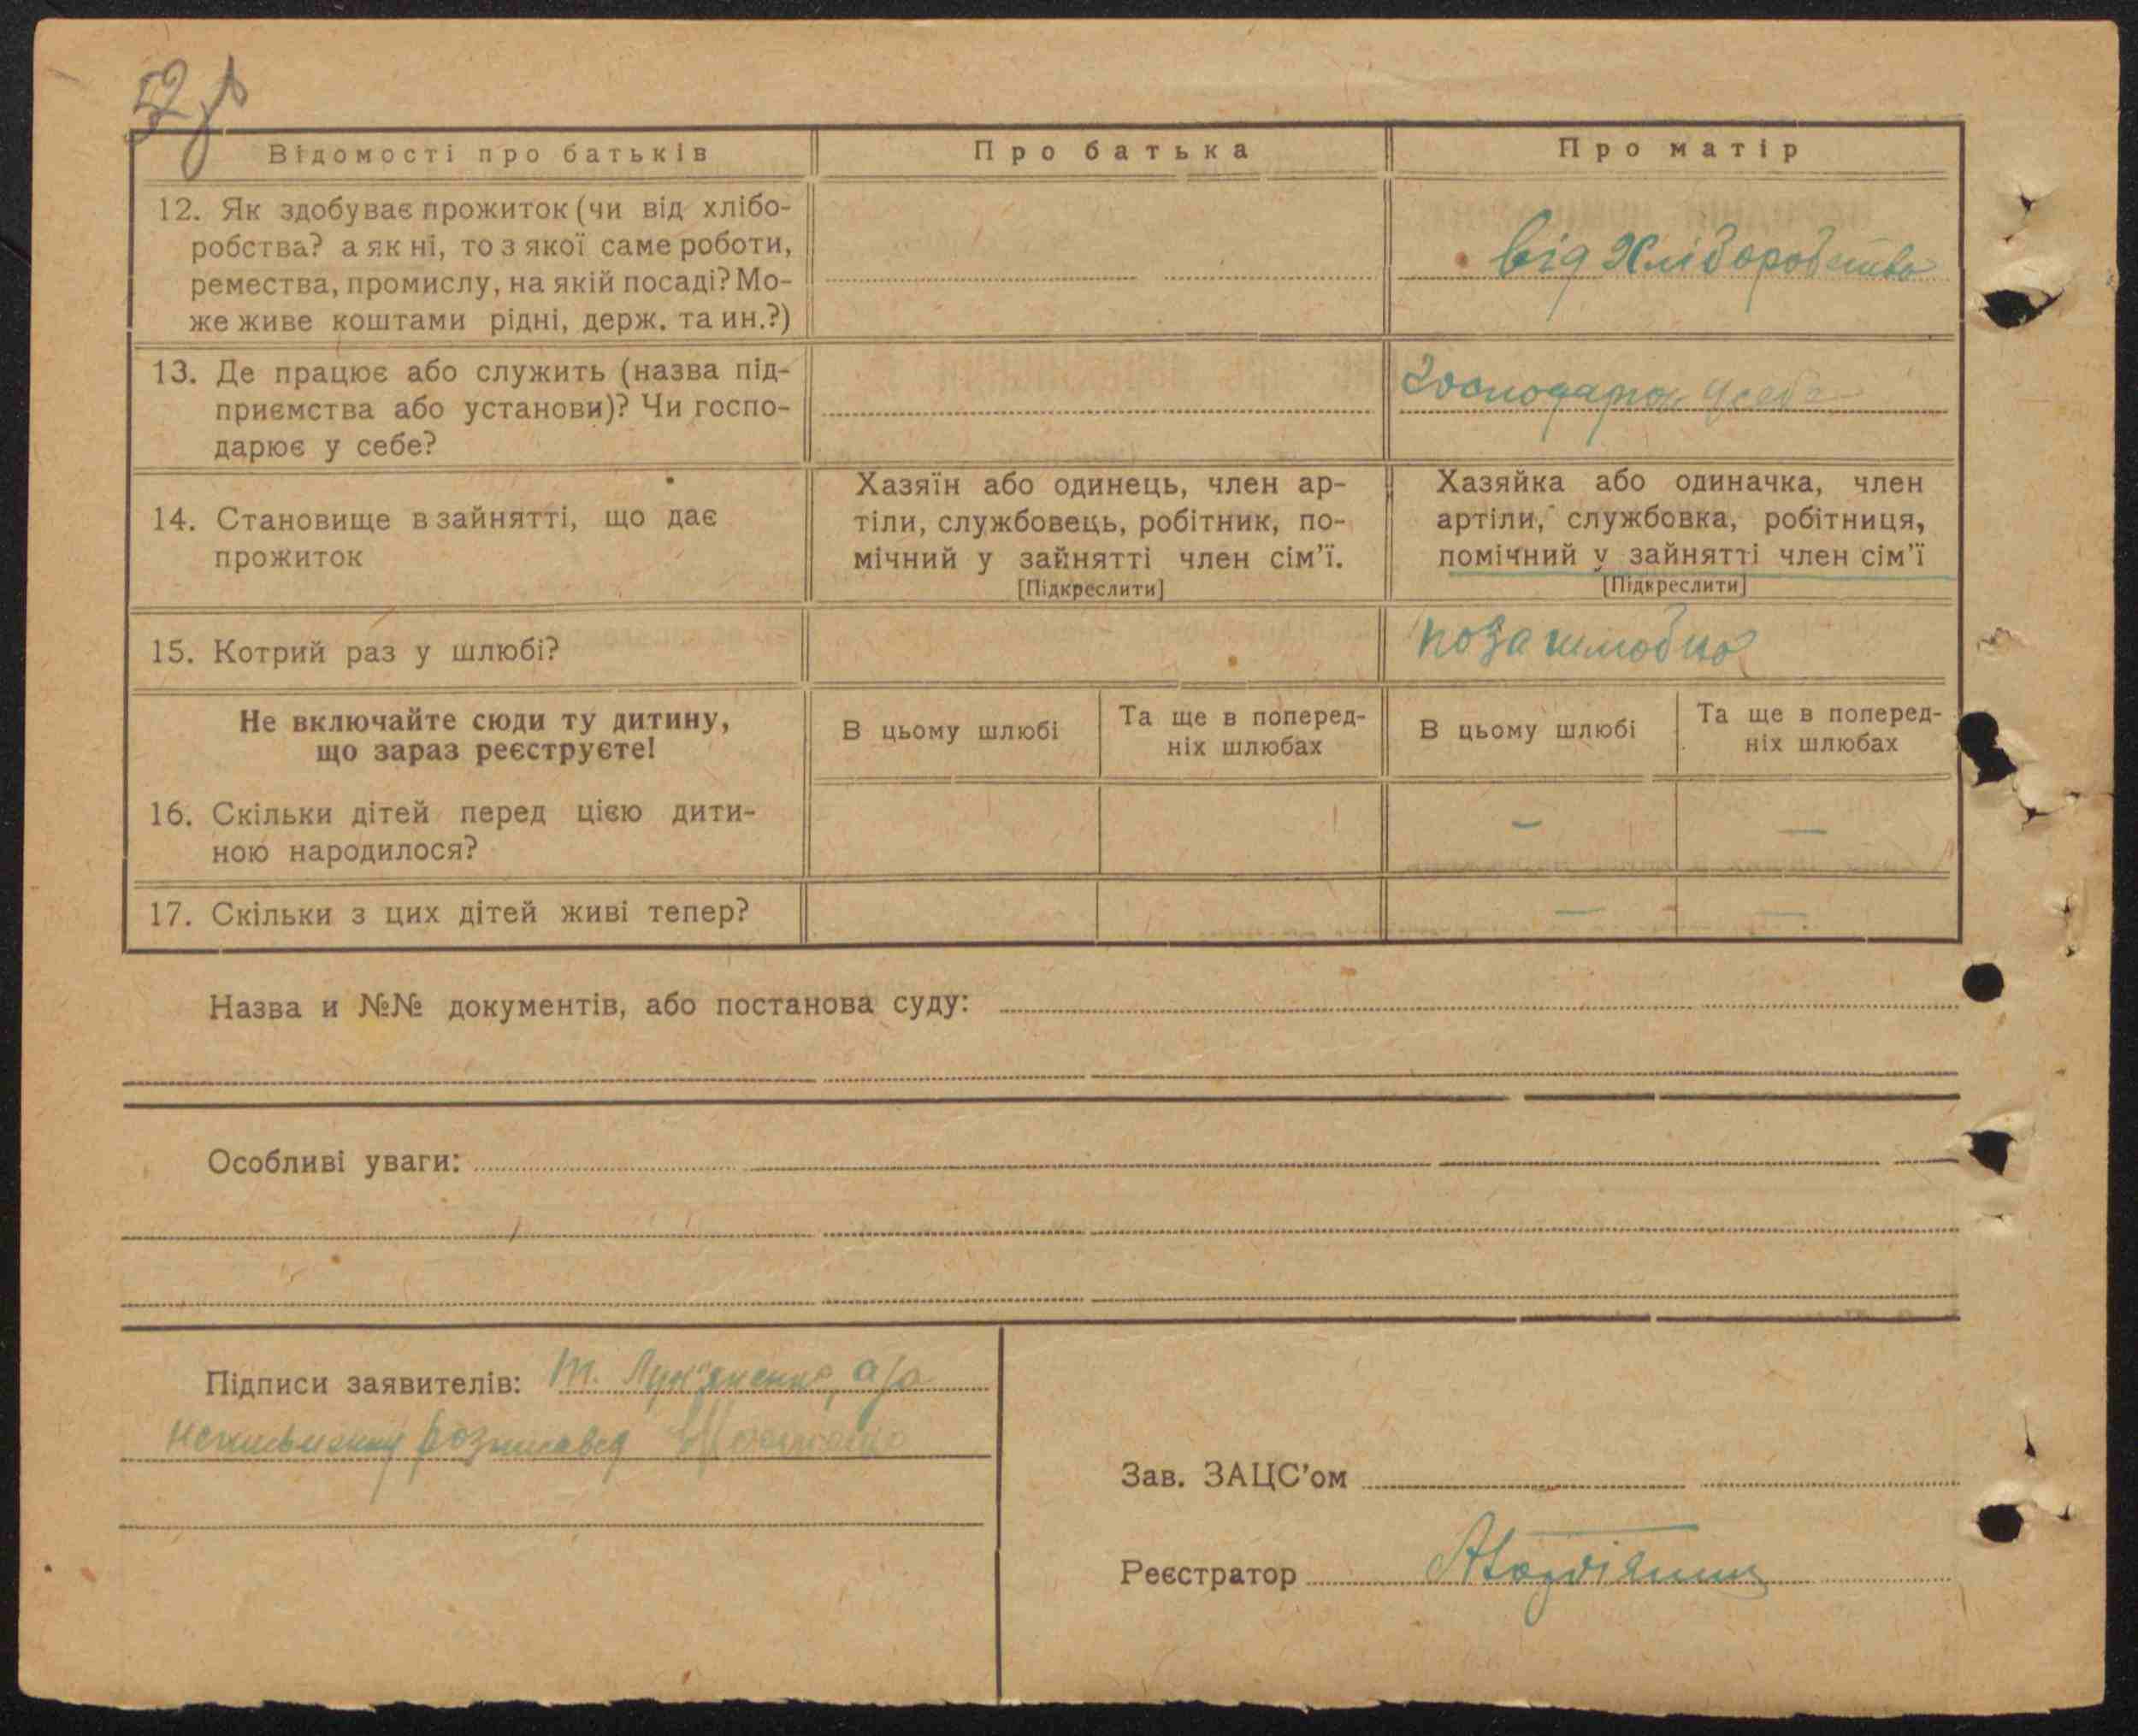 52
Відомості про батьків
Про батька
Про матір
12. Як здобуває прожиток (чи від хлібо-
робства? а як ні, то з якої саме роботи,
ремества, промислу, на якій посаді? Мо-
же живе коштами рідні, держ. та ин.?)
від Хліборобства
13. Де працює або служить (назва під-
приємства або установи)? Чи госпо-
дарює у себе?
Господарює у себе
14. Становище в зайнятті, що дає
прожиток
Хазяїн або одинець, член ар-
тіли, службовець, робітник, по-
мічний у зайнятті член сім'ї.
[Підкреслити]
Хазяйка або одиначка, член
артіли, службовка, робітниця,
помічний у зайнятті член сім'ї
[Підкреслити]
15. Котрий раз у шлюбі?
позашлюбно
Не включайте сюди ту дитину,
що зараз реєструєте!
В цьому шлюбі
Та ще в поперед-
ніх шлюбах
В цьому шлюбі
Та ще в поперед-
ніх шлюбах
16. Скільки дітей перед цією дити-
ною народилося?
–
–
17. Скільки з цих дітей живі тепер?
–
–
Назва и №№ документів, або постанова суду:
Особливі уваги:
Підписи заявителів: М. Лук'яненко, а за
неписьменну розписався
Зав. ЗАЦС'ом
Реєстратор